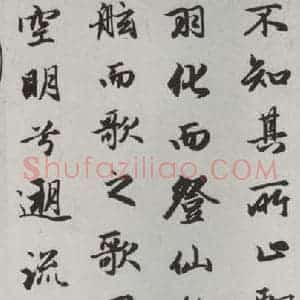 不知其所止
羽化而登仙
舷而歌之歌
空明兮遡流
Shufaziliao.com